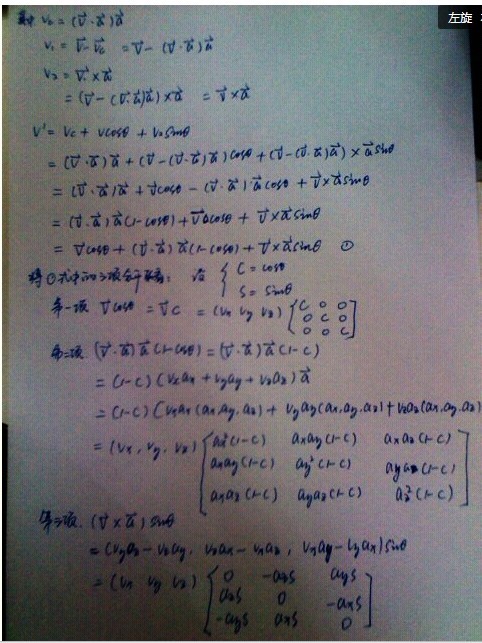 左旋
其中 Vc = (V⃗·a⃗)a⃗
V₁ = V⃗ - V⃗c = V⃗ - (V⃗·a⃗)a⃗
V₂ = V⃗₁ × a⃗
= (V⃗ - (V⃗·a⃗)a⃗) × a⃗ = V⃗ × a⃗
V' = Vc + V₁cosθ + V₂sinθ
= (V⃗·a⃗)a⃗ + (V⃗ - (V⃗·a⃗)a⃗)cosθ + (V⃗ - (V⃗·a⃗)a⃗) × a⃗sinθ
= (V⃗·a⃗)a⃗ + V⃗cosθ - (V⃗·a⃗)a⃗cosθ + V⃗×a⃗sinθ
= (V⃗·a⃗)a⃗(1-cosθ) + V⃗cosθ + V⃗×a⃗sinθ
= V⃗cosθ + (V⃗·a⃗)a⃗(1-cosθ) + V⃗×a⃗sinθ ①
将①式中的三项分开来看: 设 { C = cosθ
S = sinθ
第一项 V⃗cosθ = V⃗C = (Vx Vy Vz) [C 0 0
0 C 0
0 0 C]
第二项 (V⃗·a⃗)a⃗(1-cosθ) = (V⃗·a⃗)a⃗(1-C)
= (1-C)(Vxax + Vyay + Vzaz)a⃗
= (1-C)(Vxax(ax,ay,az) + Vyay(ax,ay,az) + Vzaz(ax,ay,az)
= (Vx, Vy, Vz) [ax²(1-C) axay(1-C) axaz(1-C)
axay(1-C) ay²(1-C) ayaz(1-C)
axaz(1-C) ayaz(1-C) az²(1-C)]
第三项. (V⃗×a⃗)sinθ
= (Vyaz - Vzay, Vzax - Vxaz, Vxay - Vyax)sinθ
= (Vx Vy Vz) [0 -azS ayS
azS 0 -axS
-ayS axS 0]